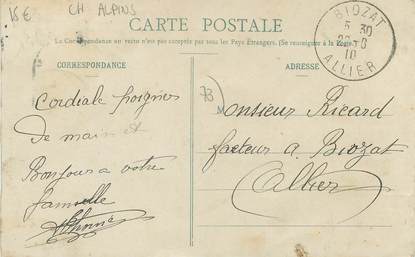 15 €
CH ALPINS
CARTE POSTALE
La Correspondance au recto n'est pas acceptée par tous les Pays Étrangers. (Se renseigner à la Poste)
BIOZAT
5 30
10
ALLIER
CORRESPONDANCE
ADRESSE
Cordiale poignées
de main et
Bonjour a votre
famille
73
Monsieur Ricard
facteur a Biozat
Allier